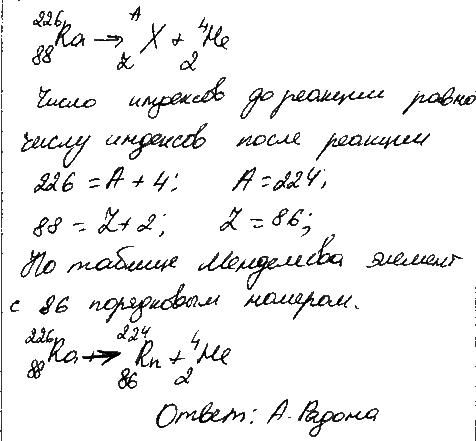 ²²⁶₈₈Ra → ᴬ_Z X + ⁴₂He
Число индексов до реакции равно
числу индексов после реакции
226 = A + 4; A = 224;
88 = Z + 2; Z = 86;
По таблице Менделеева элемент
с 86 порядковым номером.
²²⁶₈₈Ra → ²²⁴₈₆Rn + ⁴₂He
Ответ: А. Радона